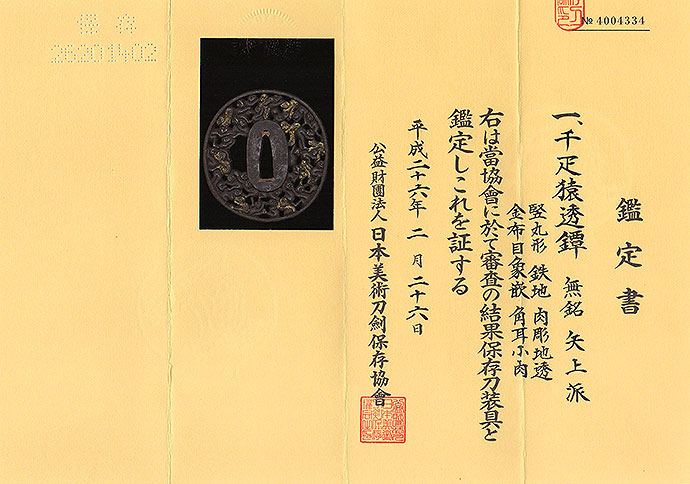 鑑定書
一、千疋猿透鐔 無銘 矢上派
竪丸形 鉄地 肉彫地透
金布目象嵌 角耳小肉
右は當協會に於て審査の結果保存刀装具と
鑑定しこれを証する
平成二十六年 二月 二十六日
公益財團法人 日本美術刀劍保存協會
№ 4004334
保存
26201402